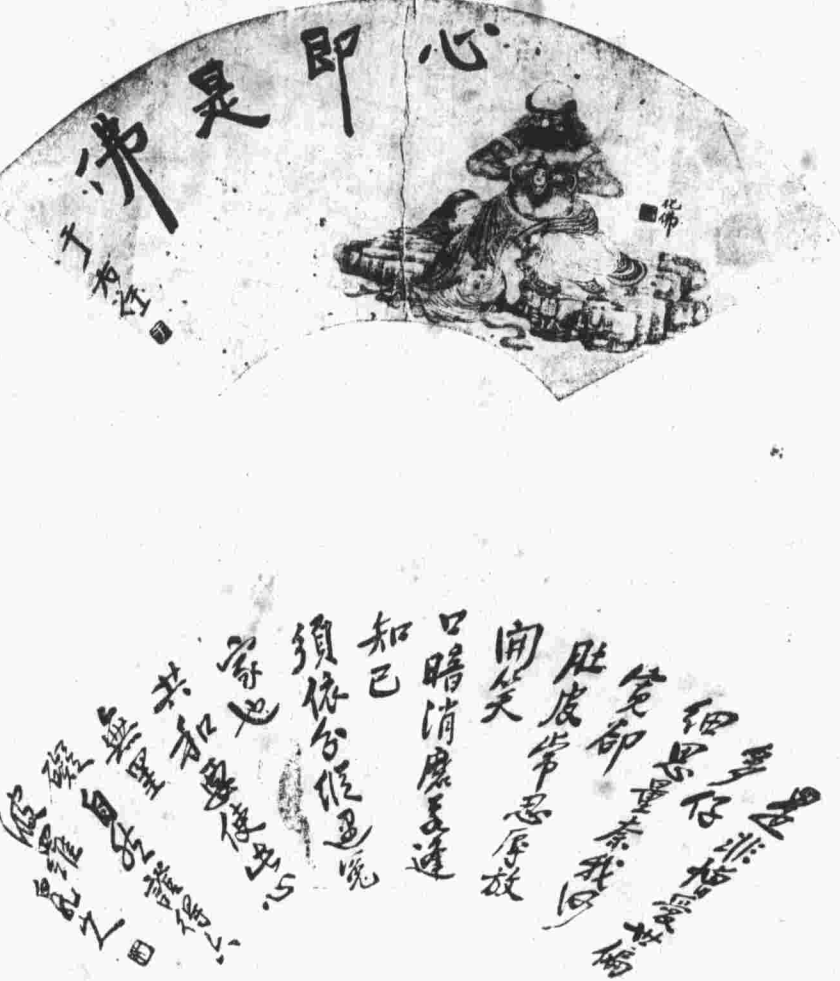 心即是佛
于右任
化佛
是非憎愛世偏
多仔
細思量奈我何
寬卻
肚皮常忍辱放
開笑
口暗消磨若逢
知己
須依分縱遇冤
家也
共和要使此心
無罣
礙自然證得六
波羅